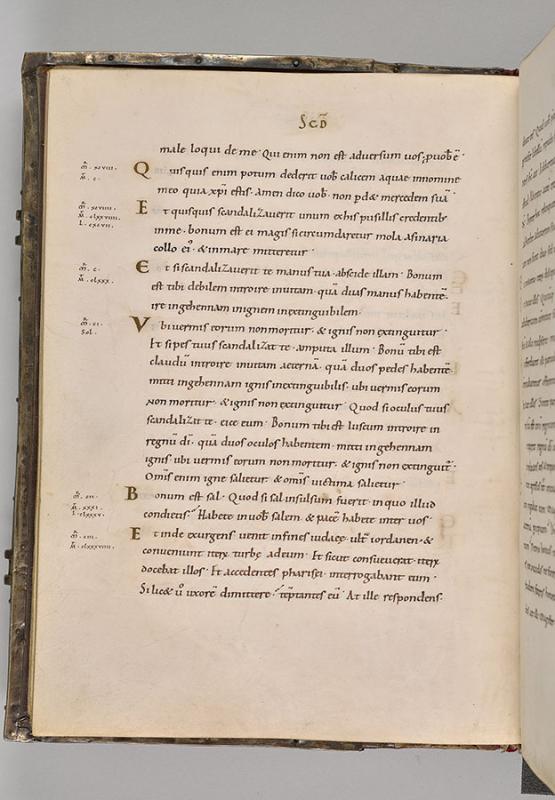 SCD̄
male loqui de me· Qui enim non est adversum vos; p̄ uob̄ ē·
Quisquis enim potum dederit vob̄ calicem aquae innomine
meo quia xp̄i estis· Amen dico vob̄· non pd& mercedem suā·
Et quisquis scandalizaverit unum exhis pusillis credentib;
inme· bonum est ei magis sicircumdaretur mola asinaria
collo ei'· & inmare mitteretur·
Et siscandalizaverit te manus tua· abscide illam· Bonum
est tibi debilem introire inuitam· quā duas manus habentē·
ire ingehennam inignem inextinguibilem·
Vbi vermis eorum nonmoritur· & ignis non extinguitur·
Et si pes tuus scandalizat te· amputa illum· Bonū tibi est
claudū introire inuitam aeternā· quā duos pedes habentē·
mitti ingehennam ignis inextinguibilis· ubi vermis eorum
non moritur· & ignis non extinguitur· Quod si oculus tuus
scandalizat te· eice eum· Bonum tibi est luscum introire in
regnū dī· quā duos oculos habentem· mitti ingehennam
ignis ubi vermis eorum non moritur· & ignis non extinguit̄·
Om̄is enim igne salietur· & om̄is uictima salietur·
Bonum est sal· Quod si sal insulsum fuerit· in quo illud
condietis? Habete inuob̄ salem· & pacē habete inter vos·
Et inde exurgens uenit infines iudaeę· ultˉ iordanen· &
conveniunt iterˉ turbę adeum· Et sicut consueverat· iterˉ
docebat illos· Et accedentes pharisei· interrogabant eum·
Si lic& ūˉ uxorē dimittere· teptantes eū· At ille respondens·
m̄· xcviii·
m̄· c·
m̄· xcviiii·
m̄· clxxviiii·
l· cxcvii·
m̄· c·
m̄· clxxx·
m̄· ci·
Sol·
m̄· cii·
m̄· xxxi·
l· clxxxv·
m̄· ciii·